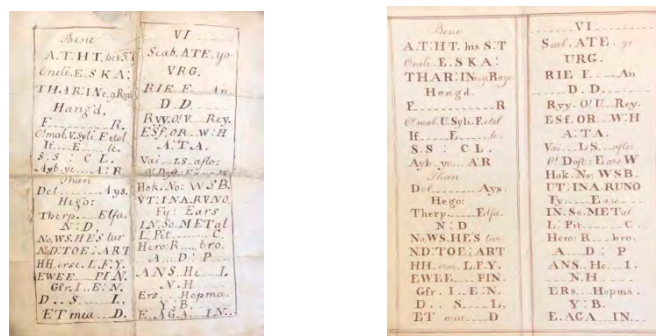 Bene
A.T.HT. his S.T
Oneli. E.SKA:
THAR:INe.g.Rope
Hang'd.
F........R.
O! mal. V. Syli. F. etol
If....E....le.
S.S : C L.
Ayb. ye... A : R
Than
Del........Ays.
Hego:
Therp....Elfa.
N : D.
No,WS.HE'S lur
N.D:TOE:ART
HH. erse. L.F.Y.
EWEE....PIN.
Gfr. I..E:N.
D . . S......L,
ET mea....D.
VI
Scab. ATE. yo
VRG.
RIE F.....An
D.D.
Ryy. O! V. Rey.
ESf. OR...W:H
A:T.A.
Vai...LS aflo:
Hok. No: WSB.
VT:INA.RVNO.
Fy: Ears
IN.So.METal
L. Pit.......C.
Hero:R....bro.
A....D : P
ANS. He....I.
N.H
Ers....Hopma
Y:B.
E. AGA....IN...
Bene
A.T:HT. his S:T
Oneli. E.SKA:
THAR:INe.g.Rope
Hang'd.
F........R
O! mal. U. Syli. F. etol
If....E....le.
S.S : C L.
Ayb. ye... A R
Than
Del........Ays.
Hego:
Therp....Elfa.
N:D
No,WS.HE'S lur
N.D:TOE:ART
HH. erse. L.F.Y.
EWEE....PIN.
Gfr. I..E:N.
D . . S....L.
ET mea....D
VI
Scab. ATE. yo
URG.
RIE F.....An
D.D.
Ryy. O! U..Rey.
ESf. OR...W:H
A:T.A.
Vai...LS aflo:
O! Dost: Eare W
Hok. No: WSB.
UT:INA.RUNO
Fy: Ears
IN. So. METal
L: Pit.......C.
Hero:R....bro.
A...D : P
ANS. He....I.
N.H
ERs...Hopma.
Y:B.
E.AGA...IN...